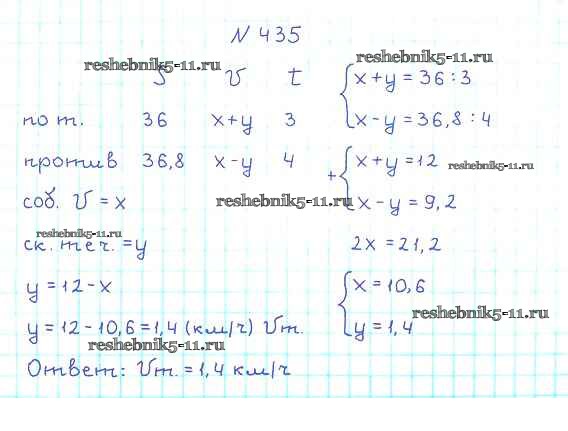 N 435
reshebnik5-11.ru
reshebnik5-11.ru
S V t
x+y = 36 : 3
x-y = 36,8 : 4
по т. 36 x+y 3
против 36,8 x-y 4
+ x+y = 12 reshebnik5-11.ru
x-y = 9,2
соб. V = x
reshebnik5-11.ru
reshebnik5-11.ru
ск. теч. = y
2x = 21,2
y = 12 - x
x = 10,6
y = 1,4
reshebnik5-11.ru
y = 12 - 10,6 = 1,4 (км/ч) Vт.
reshebnik5-11.ru
Ответ: Vт. = 1,4 км/ч